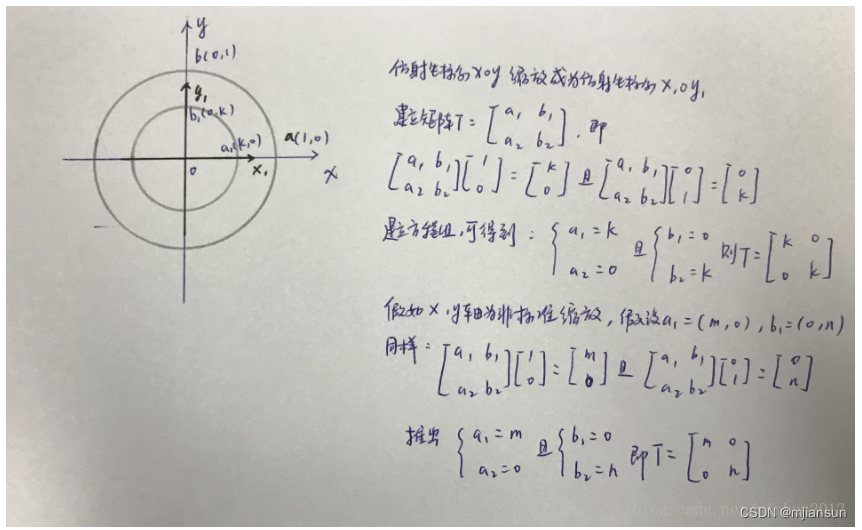 y
b(0,1)
y₁
b₁(0,k)
a₁(k,0)
a(1,0)
0
x₁
x
仿射坐标系xoy缩放成为仿射坐标系x₁oy₁
建立矩阵T=[a₁ b₁; a₂ b₂],即
[a₁ b₁; a₂ b₂][1; 0]=[k; 0]且[a₁ b₁; a₂ b₂][0; 1]=[0; k]
建立方程组,可得到:{a₁=k; a₂=0 且{b₁=0; b₂=k 则T=[k 0; 0 k]
假如x,y轴为非标准缩放,假设a₁=(m,0),b₁=(0,n)
同样:[a₁ b₁; a₂ b₂][1; 0]=[m; 0]且[a₁ b₁; a₂ b₂][0; 1]=[0; n]
推出{a₁=m; a₂=0 且{b₁=0; b₂=n 即T=[m 0; 0 n]
CSDN @mjiansun